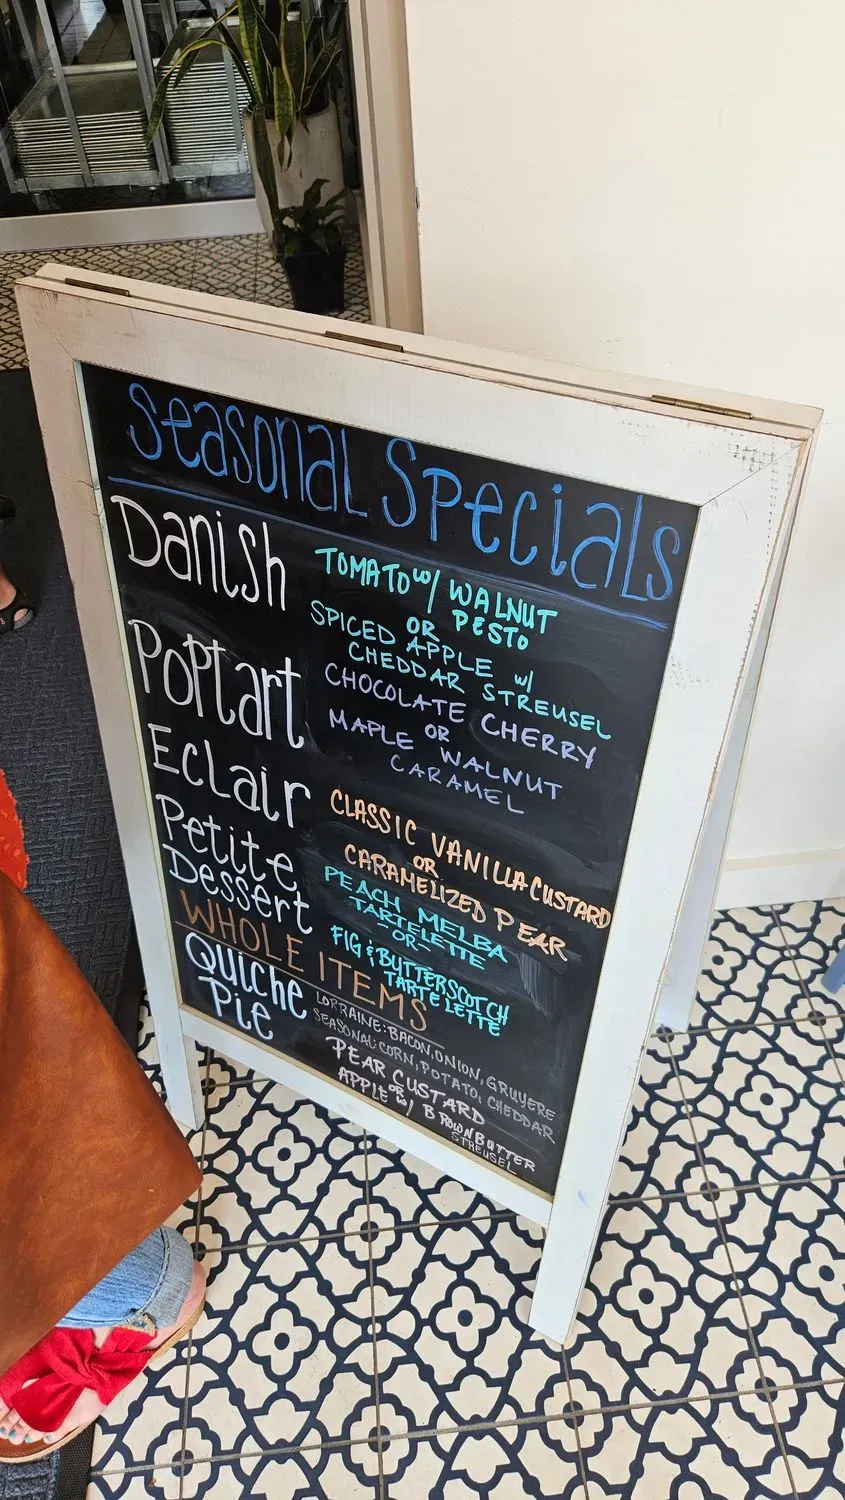 Seasonal Specials
Danish
TOMATO w/ WALNUT
OR PESTO
SPICED APPLE w/
CHEDDAR STREUSEL
Poptart
CHOCOLATE CHERRY
OR
MAPLE WALNUT
CARAMEL
Eclair
CLASSIC VANILLA CUSTARD
OR
CARAMELIZED PEAR
Petite
Dessert
PEACH MELBA
TARTELETTE
-OR-
FIG & BUTTERSCOTCH
TARTELETTE
WHOLE ITEMS
Quiche
LORRAINE: BACON, ONION, GRUYERE
SEASONAL: CORN, POTATO, CHEDDAR
Pie
PEAR CUSTARD
OR
APPLE w/ BROWN BUTTER
STREUSEL